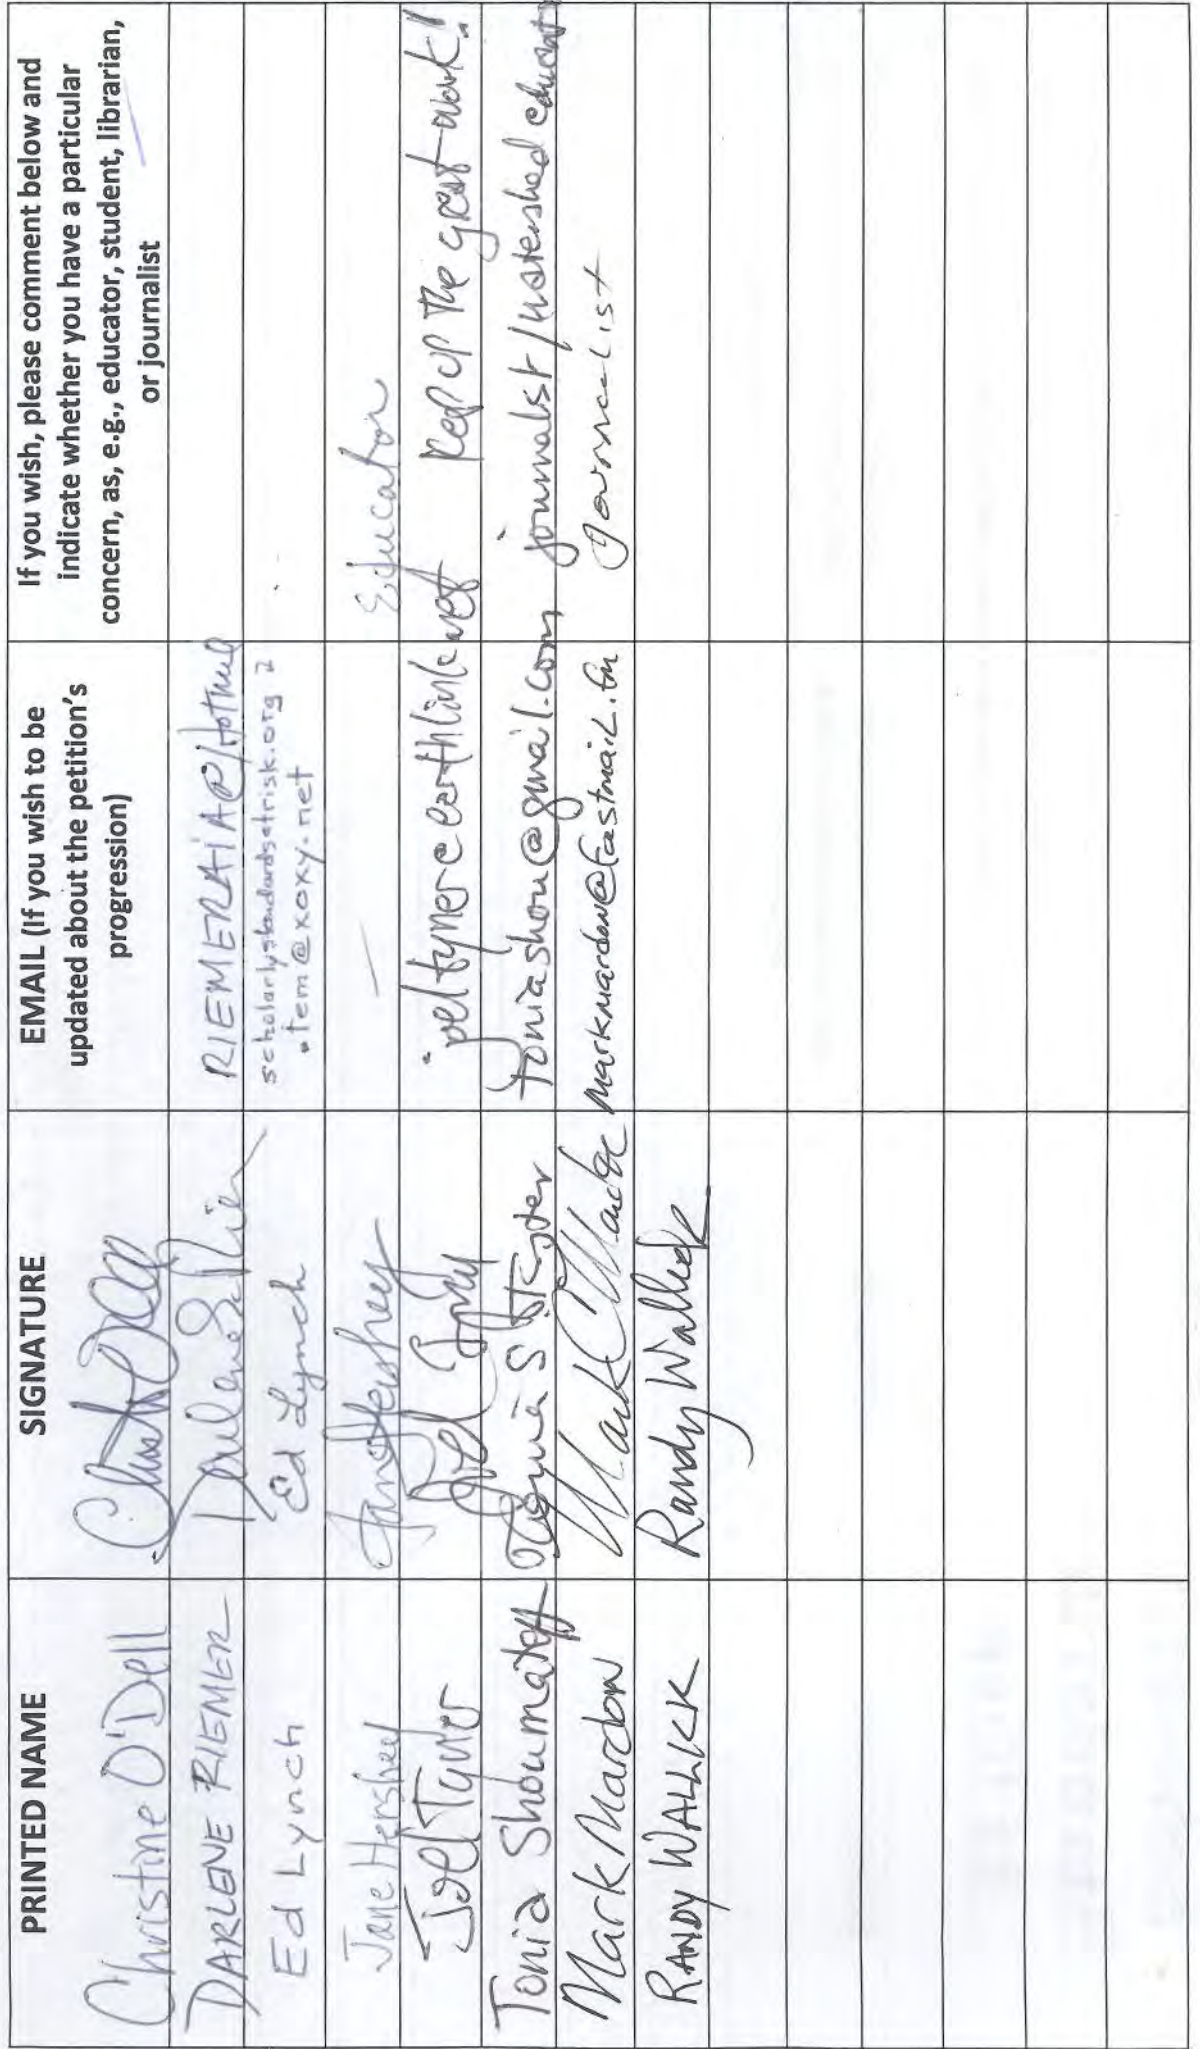 PRINTED NAME
SIGNATURE
EMAIL (If you wish to be
updated about the petition's
progression)
If you wish, please comment below and
indicate whether you have a particular
concern, as, e.g., educator, student, librarian,
or journalist
Christine O'Dell
DARLENE RIEMER
RIEMERAIA@Hotmail
Ed Lynch
Ed Lynch
scholarlystandardsatrisk.org 2
.tem@xoxy.net
Jane Hershey
Jane Hershey
—
Educator
Joel Tyner
Joel Tyner
joeltyner@earthlink.net
Keep up the great work!!
Tonia Shoumatoff
toniashou@gmail.com
journalist/watershed educator
Mark Mardon
markmardon@fastmail.fm
Journalist
RANDY WALLKK
Randy